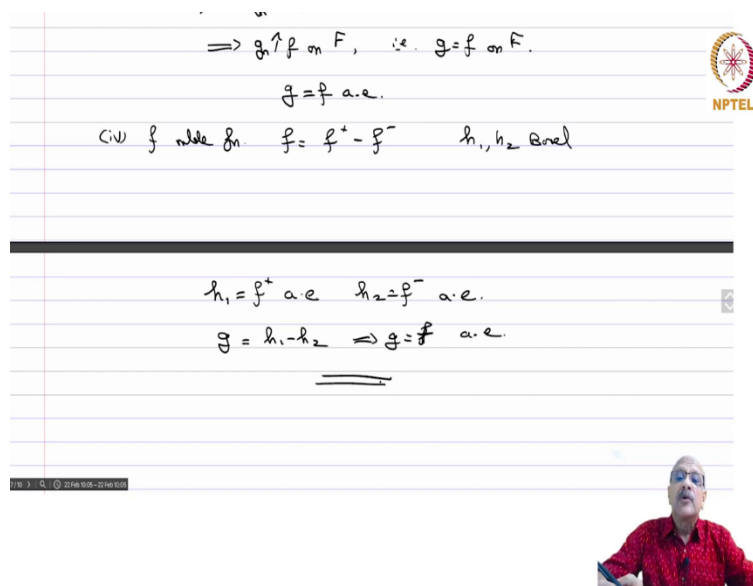 ⟹ gₙ↑f on F, i.e. g=f on F.
g=f a.e.
NPTEL
(iv) f mble fn. f = f⁺ - f⁻ h₁, h₂ Borel
h₁ = f⁺ a.e h₂=f⁻ a.e.
g = h₁-h₂ ⟹ g=f a.e.
22 Feb 10:05 - 22 Feb 10:05